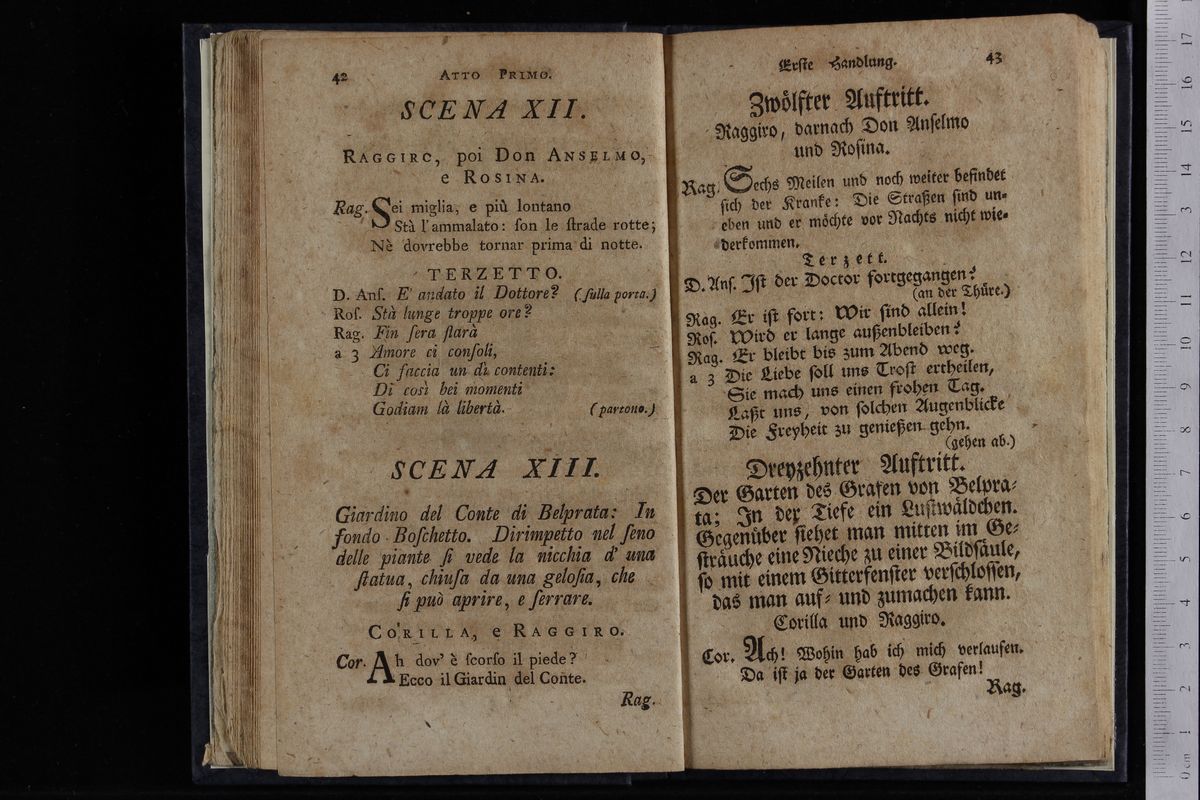 42 ATTO PRIMO.
SCENA XII.
RAGGIRO, poi DON ANSELMO,
e ROSINA.
Rag. Sei miglia, e più lontano
Stà l'ammalato: ſon le ſtrade rotte;
Nè dovrebbe tornar prima di notte.
TERZETTO.
D. Anſ. E' andato il Dottore? (ſulla porta.)
Roſ. Stà lunge troppe ore?
Rag. Fin ſera ſtarà
a 3 Amore ci conſoli,
Ci faccia un dì contenti:
Di così bei momenti
Godiam là libertà. (partono.)
SCENA XIII.
Giardino del Conte di Belprata: In
fondo Boſchetto. Dirimpetto nel ſeno
delle piante ſi vede la nicchia d' una
ſtatua, chiuſa da una geloſia, che
ſi può aprire, e ſerrare.
CORILLA, e RAGGIRO.
Cor. Ah dov' è ſcorſo il piede?
Ecco il Giardin del Conte.
Rag.
Erſte Handlung. 43
Zwölfter Auftritt.
Raggiro, darnach Don Anſelmo
und Roſina.
Rag. Sechs Meilen und noch weiter befindet
ſich der Kranke: Die Straßen ſind un-
eben und er möchte vor Nachts nicht wie-
derkommen.
Terzett.
D. Anſ. Iſt der Doctor fortgegangen?
(an der Thüre.)
Rag. Er iſt fort: Wir ſind allein!
Roſ. Wird er lange außenbleiben?
Rag. Er bleibt bis zum Abend weg.
a 3 Die Liebe ſoll uns Troſt ertheilen,
Sie mach uns einen frohen Tag.
Laßt uns, von ſolchen Augenblicke
Die Freyheit zu genießen gehn.
(gehen ab.)
Dreyzehnter Auftritt.
Der Garten des Grafen von Belpra-
ta; In der Tiefe ein Luſtwäldchen.
Gegenüber ſiehet man mitten im Ge-
ſträuche eine Nieche zu einer Bildſäule,
ſo mit einem Gitterfenſter verſchloſſen,
das man auf- und zumachen kann.
Corilla und Raggiro.
Cor. Ach! Wohin hab ich mich verlaufen.
Da iſt ja der Garten des Grafen!
Rag.
0 cm 1 2 3 4 5 6 7 8 9 10 11 12 13 14 15 16 17